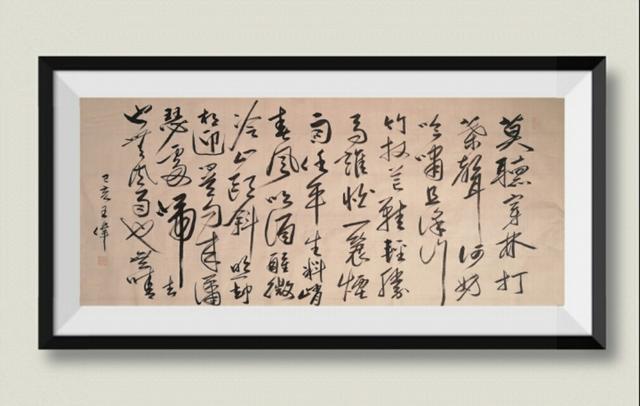 莫聽穿林打
葉聲何妨
吟嘯且徐行
竹杖芒鞋輕勝
馬誰怕一蓑煙
雨任平生料峭
春風吹酒醒微
冷山頭斜照却
相迎回首向来蕭
瑟處歸去
也無風雨也無晴
己亥王偉